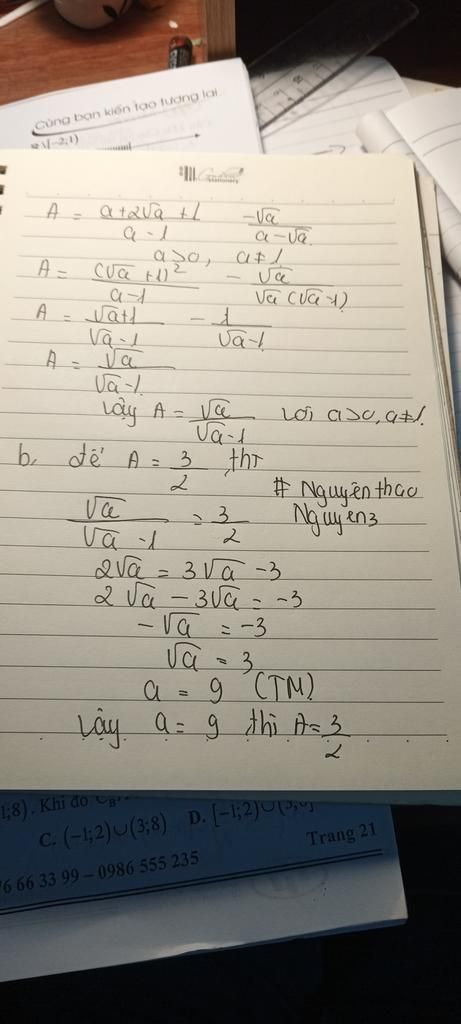 Cùng bạn kiến tạo tương lai
\[-2;1)
stationery
A = a+2√a+1 / a-1 - √a / a-√a
a>0, a≠1
A = (√a+1)² / a-1 - √a / √a(√a-1)
A = √a+1 / √a-1 - 1 / √a-1
A = √a / √a-1
Vậy A = √a / √a-1 với a>0, a≠1.
b, để A = 3/2 thì
# Nguyenthao
Nguyen3
√a / √a-1 = 3/2
2√a = 3√a-3
2√a-3√a = -3
-√a = -3
√a = 3
a = 9 (TM)
Vậy a = 9 thì A = 3/2
1;8). Khi đó
C. (-1;2)∪(3;8) D. [-1;2)∪(3;8]
Trang 21
6 66 33 99 – 0986 555 235